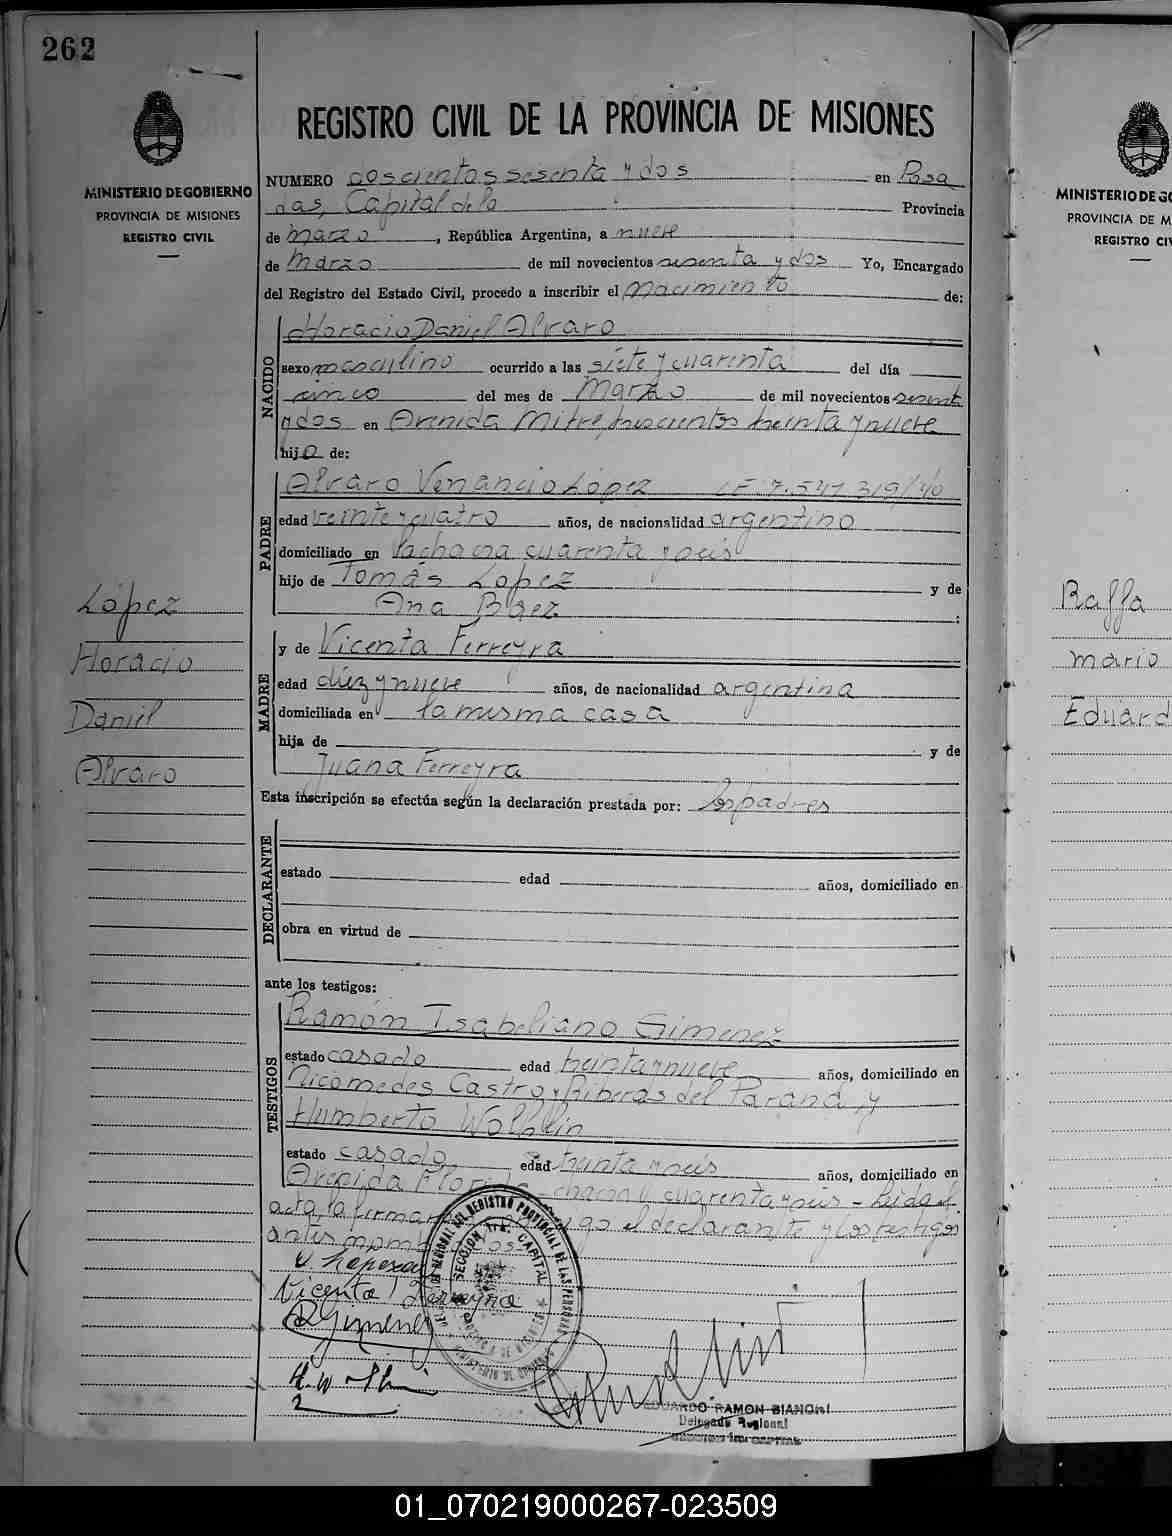 262
MINISTERIO DE GOBIERNO
PROVINCIA DE MISIONES
REGISTRO CIVIL
REGISTRO CIVIL DE LA PROVINCIA DE MISIONES
NUMERO doscientos sesenta y dos en Posa
das, Capital de la Provincia
de Marzo, República Argentina, a nueve
de Marzo de mil novecientos sesenta y dos Yo, Encargado
del Registro del Estado Civil, procedo a inscribir el Nacimiento de:
NACIDO
Horacio Daniel Alvaro
sexo masculino ocurrido a las siete y cuarenta del día
cinco del mes de Marzo de mil novecientos sesenta
y dos en Avenida Mitre, trescientos treinta y nueve
hijo de:
PADRE
Alvaro Venancio López LE. 7.541.319/40
edad veinte y cuatro años, de nacionalidad argentino
domiciliado en cuarenta y seis
hijo de Tomás López y de
Ana Báez :
MADRE
y de Vicenta Ferreyra
edad diez y nueve años, de nacionalidad argentina
domiciliada en la misma casa
hija de y de
Juana Ferreyra
Esta inscripción se efectúa según la declaración prestada por: los padres
DECLARANTE
estado edad años, domiciliado en
obra en virtud de
ante los testigos:
TESTIGOS
Ramón Isabeliano Gimenez
estado casado edad treinta y nueve años, domiciliado en
Nicomedes Castro y Riberas del Paraná y
Humberto
estado casado edad treinta y seis años, domiciliado en
Avenida cuarenta y seis - Leida el
acta la firman el declarante y los testigos
antes
Vicenta Ferreyra
R Gimenez
EDUARDO RAMON BIANCHI
Delegado Regional
SECCION 1ra. CAPITAL
DELEGACION REGIONAL DEL REGISTRO PROVINCIAL DE LAS PERSONAS
SECCION 1ra. CAPITAL
López
Horacio
Daniel
Alvaro
MINISTERIO DE GO
PROVINCIA DE M
REGISTRO CIV
Raffa
Mario
Eduard
01_070219000267-023509